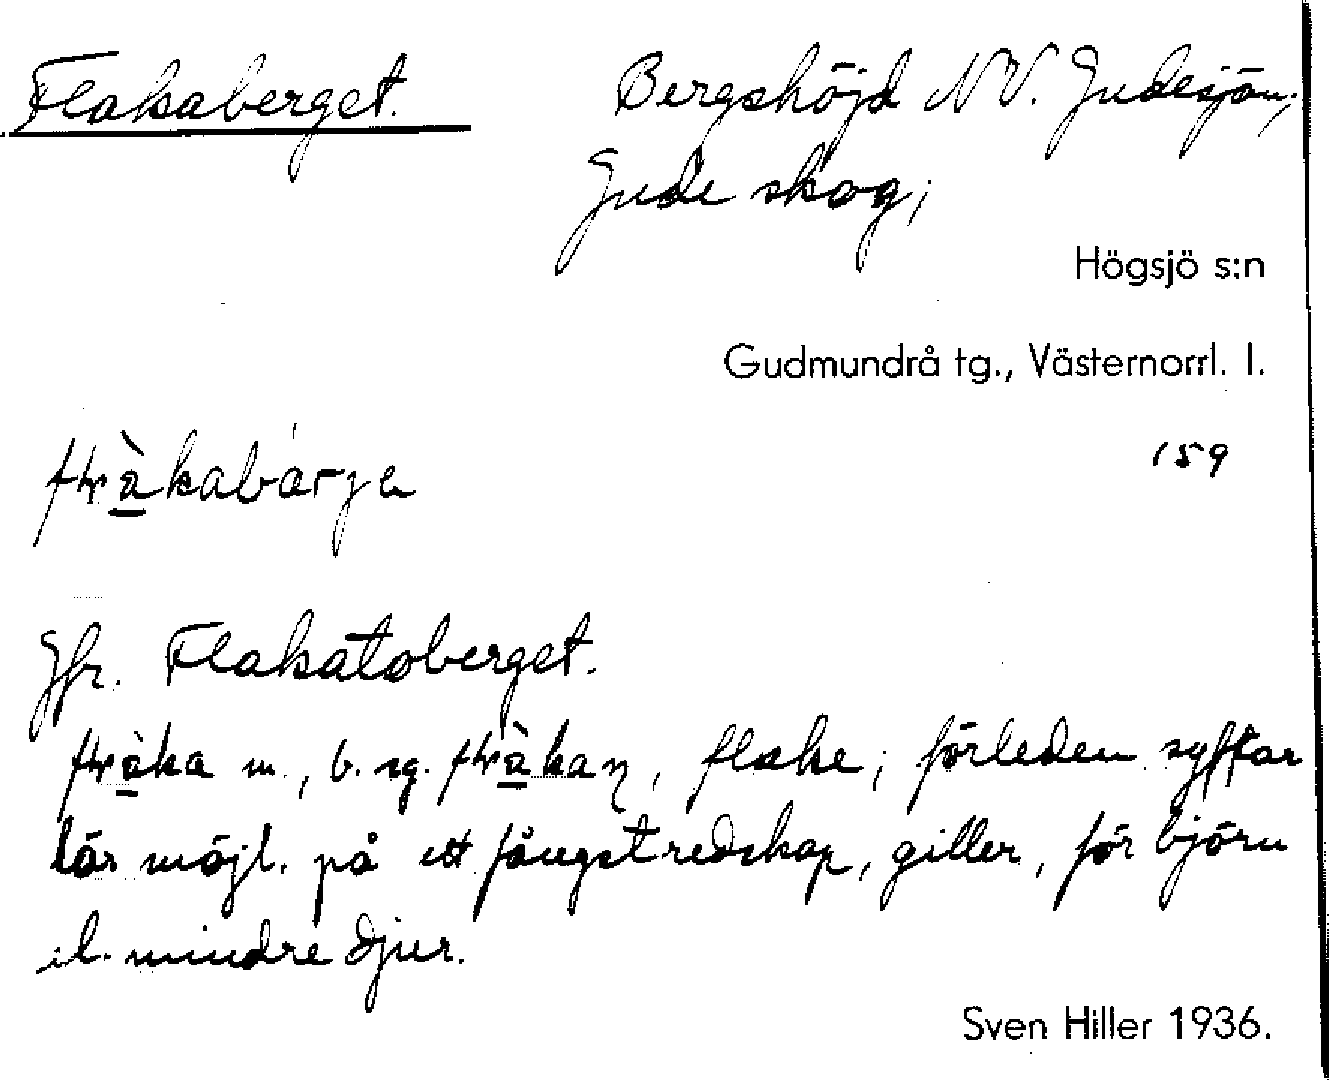 Flakaberget.
Bergshöjd NV. Gudesjön,
Gude skog;
Högsjö s:n
Gudmundrå tg., Västernorrl. l.
159
Jfr. Flakatoberget.
m., b. sg. flake; förleden syftar
här möjl. på ett fångstredskap, giller, för björn
el. mindre djur.
Sven Hiller 1936.